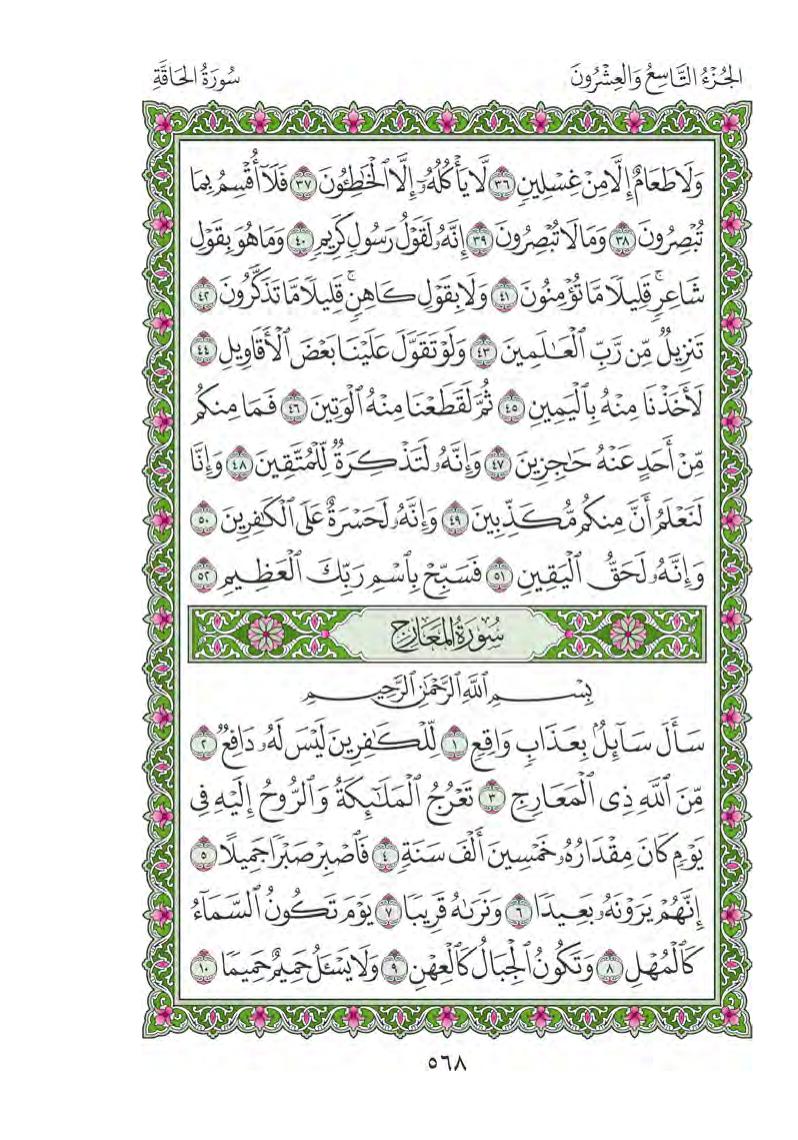 الجُزْءُ التَّاسِعُ وَالعِشْرُونَ
سُورَةُ الحَاقَّةِ
وَلَا طَعَامٌ إِلَّا مِنْ غِسْلِينٍ ٣٦ لَّا يَأْكُلُهُۥٓ إِلَّا ٱلْخَٰطِـُٔونَ ٣٧ فَلَآ أُقْسِمُ بِمَا
تُبْصِرُونَ ٣٨ وَمَا لَا تُبْصِرُونَ ٣٩ إِنَّهُۥ لَقَوْلُ رَسُولٍ كَرِيمٍ ٤٠ وَمَا هُوَ بِقَوْلِ
شَاعِرٍۚ قَلِيلًا مَّا تُؤْمِنُونَ ٤١ وَلَا بِقَوْلِ كَاهِنٍۚ قَلِيلًا مَّا تَذَكَّرُونَ ٤٢
تَنزِيلٌ مِّن رَّبِّ ٱلْعَٰلَمِينَ ٤٣ وَلَوْ تَقَوَّلَ عَلَيْنَا بَعْضَ ٱلْأَقَاوِيلِ ٤٤
لَأَخَذْنَا مِنْهُ بِٱلْيَمِينِ ٤٥ ثُمَّ لَقَطَعْنَا مِنْهُ ٱلْوَتِينَ ٤٦ فَمَا مِنكُم
مِّنْ أَحَدٍ عَنْهُ حَٰجِزِينَ ٤٧ وَإِنَّهُۥ لَتَذْكِرَةٌ لِّلْمُتَّقِينَ ٤٨ وَإِنَّا
لَنَعْلَمُ أَنَّ مِنكُم مُّكَذِّبِينَ ٤٩ وَإِنَّهُۥ لَحَسْرَةٌ عَلَى ٱلْكَٰفِرِينَ ٥٠
وَإِنَّهُۥ لَحَقُّ ٱلْيَقِينِ ٥١ فَسَبِّحْ بِٱسْمِ رَبِّكَ ٱلْعَظِيمِ ٥٢
سُورَةُ المَعَارِجِ
بِسْمِ ٱللَّهِ ٱلرَّحْمَٰنِ ٱلرَّحِيمِ
سَأَلَ سَآئِلٌۢ بِعَذَابٍ وَاقِعٍ ١ لِّلْكَٰفِرِينَ لَيْسَ لَهُۥ دَافِعٌ ٢
مِّنَ ٱللَّهِ ذِى ٱلْمَعَارِجِ ٣ تَعْرُجُ ٱلْمَلَٰٓئِكَةُ وَٱلرُّوحُ إِلَيْهِ فِى
يَوْمٍ كَانَ مِقْدَارُهُۥ خَمْسِينَ أَلْفَ سَنَةٍ ٤ فَٱصْبِرْ صَبْرًا جَمِيلًا ٥
إِنَّهُمْ يَرَوْنَهُۥ بَعِيدًا ٦ وَنَرَىٰهُ قَرِيبًا ٧ يَوْمَ تَكُونُ ٱلسَّمَآءُ
كَٱلْمُهْلِ ٨ وَتَكُونُ ٱلْجِبَالُ كَٱلْعِهْنِ ٩ وَلَا يَسْـَٔلُ حَمِيمٌ حَمِيمًا ١٠
٥٦٨